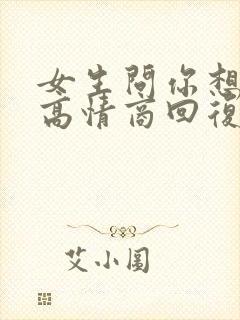 女生問你想
高情商回復
艾小圖